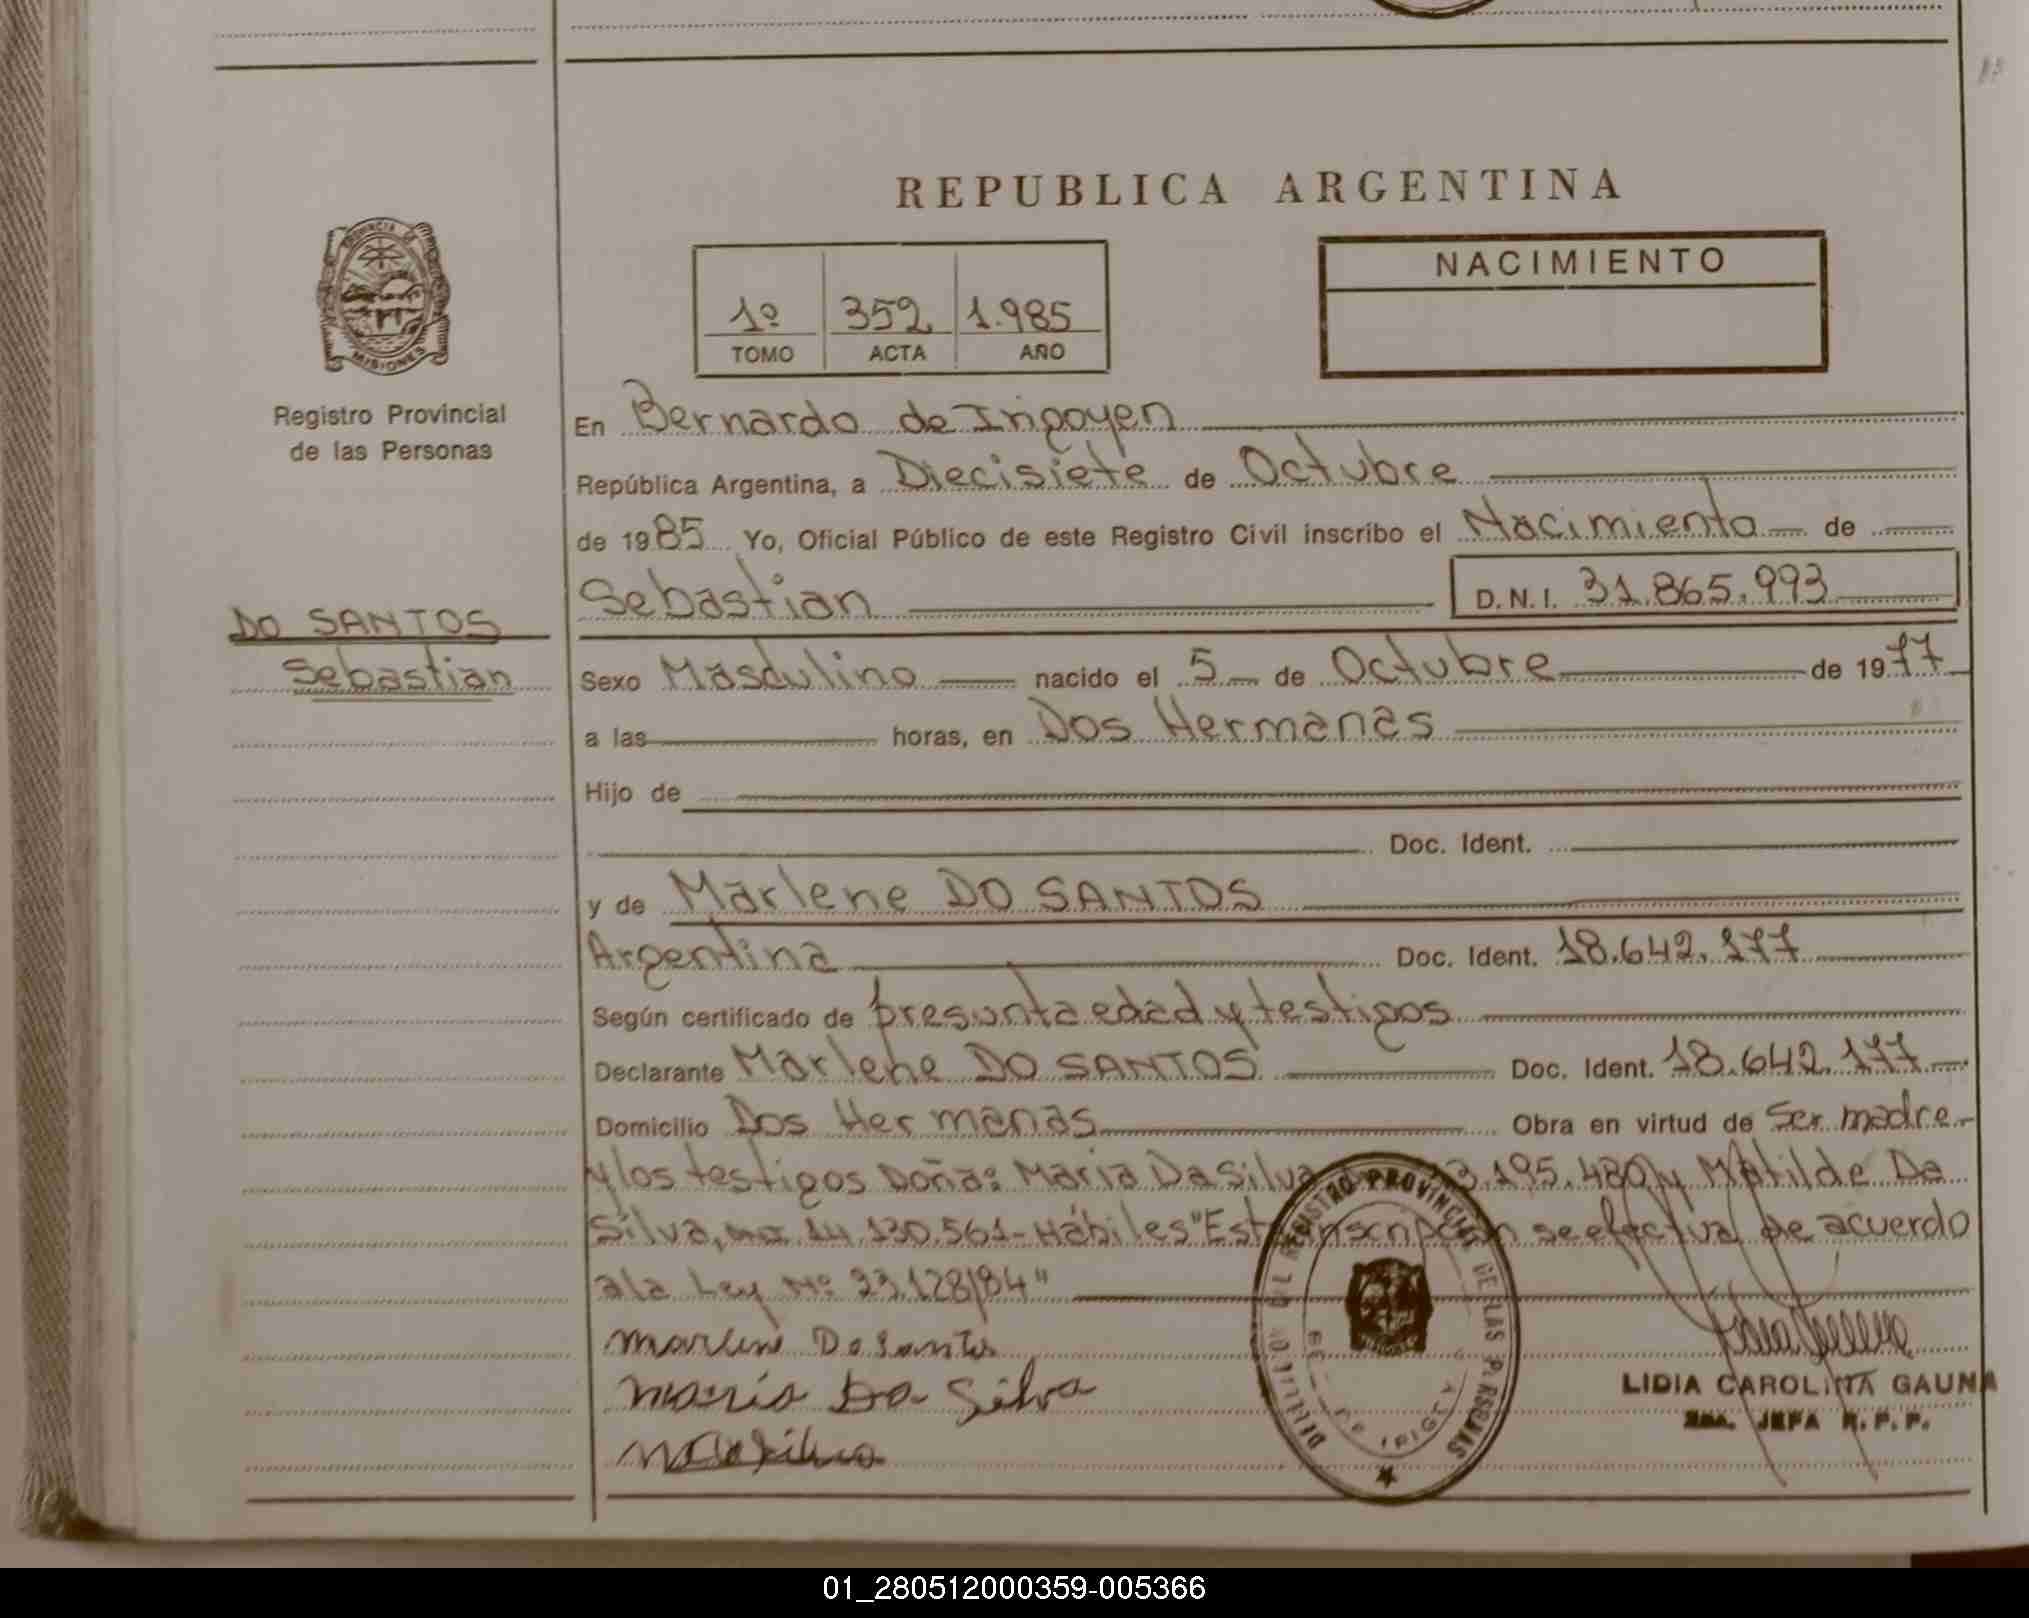 REPUBLICA ARGENTINA
PROVINCIA DE
MISIONES
Registro Provincial
de las Personas
NACIMIENTO
1º 352 1.985
TOMO ACTA AÑO
En Bernardo de Irigoyen
República Argentina, a Diecisiete de Octubre
de 1985 Yo, Oficial Público de este Registro Civil inscribo el Nacimiento de
Sebastian D.N.I. 31.865.993
DO SANTOS
Sebastian
Sexo Masculino nacido el 5 de Octubre de 1977
a las horas, en Dos Hermanas
Hijo de
Doc. Ident.
y de Marlene DO SANTOS
Argentina Doc. Ident. 18.642.177
Según certificado de presunta edad y testigos
Declarante Marlene DO SANTOS Doc. Ident. 18.642.177
Domicilio Dos Hermanas Obra en virtud de Ser madre
y los testigos Doña: Maria Da Silva 13.195.480 y Matilde Da
Silva, 14.130.561 - Hábiles "Esta inscripcion se efectua de acuerdo
a la Ley Nº 23.128/84"
Marlene Do Santos
Maria Da Silva
DEL REGISTRO PROVINCIAL DE LAS PERSONAS
LIDIA CAROLINA GAUNA
JEFA R.P.P.
01_280512000359-005366